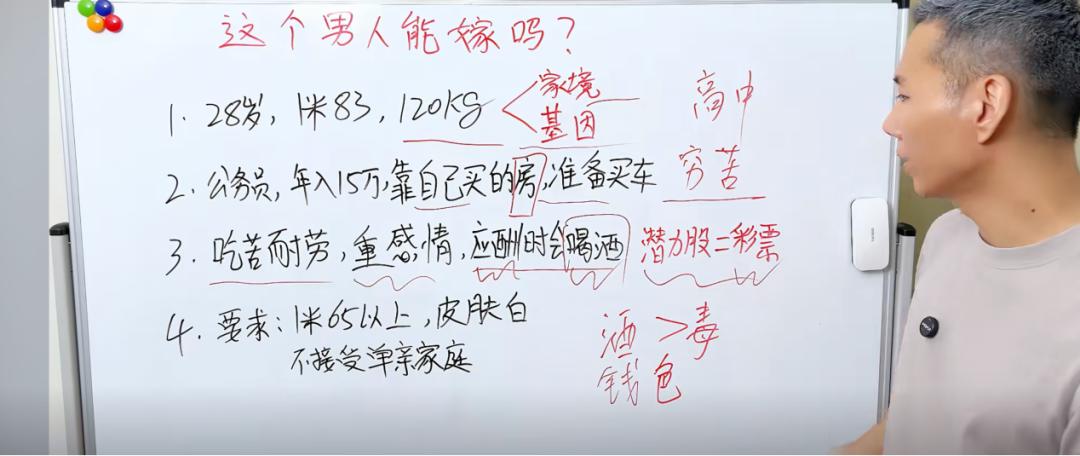 这个男人能嫁吗?
1. 28岁, 1米83, 120KG
家境
基因
高中
2. 公务员, 年入15万,靠自己买的房,准备买车
穷苦
3. 吃苦耐劳, 重感情, 应酬时会喝酒
潜力股=彩票
4. 要求: 1米65以上, 皮肤白
不接受单亲家庭
酒>毒
钱色